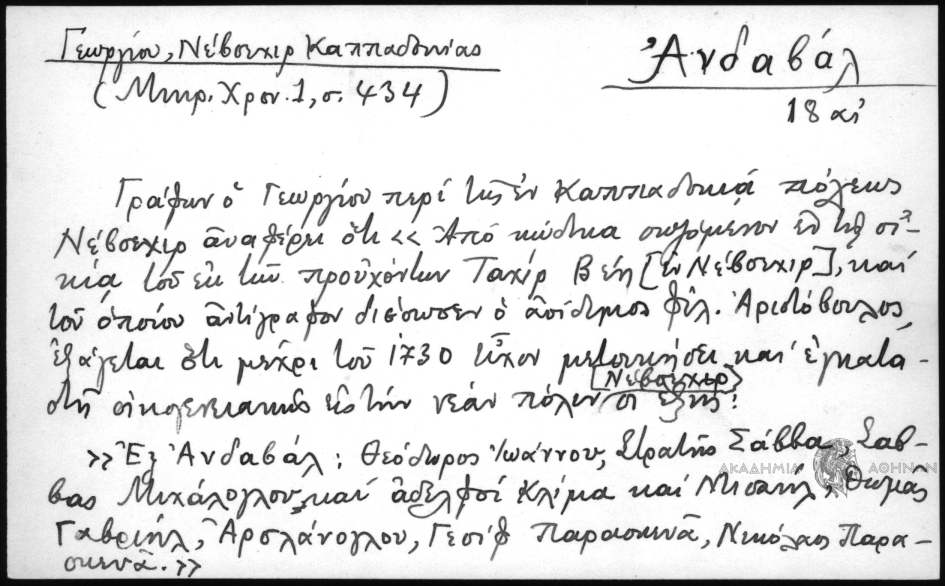 Γεωργίου, Νέβσεχιρ Καππαδοκίας
(Μικρ. Χρον. 1, σ. 434)
Ἀνδαβάλ
18 αἰ
Γράφων ὁ Γεωργίου περί τῆς ἐν Καππαδοκίᾳ πόλεως
Νέβσεχιρ ἀναφέρει ὅτι << Ἀπό κώδικα σωζομένου ἐν τῇ οἰ-
κίᾳ τοῦ ἐκ τῶν προὐχόντων Ταχίρ Βέη [ἐν Νέβσεχιρ], καί
τοῦ ὁποίου ἀντίγραφον διέσωσεν ὁ ἀοίδιμος φιλ. Ἀριστόβουλος,
ἐξάγεται ὅτι μέχρι τοῦ 1730 εἶχον μετοικήσει καί ἐγκατα-
στῆ οἰκογενειακῶς εἰς τήν νέαν πόλιν [Νέβσεχιρ] οἱ ἑξῆς:
>> Ἐξ Ἀνδαβάλ: Θεόδωρος Ἰωάννου, Στρατῆς Σάββα, Σάβ-
βας Μιχάλογλου καί ἀδελφοί Κλίμα και Μισαήλ, Θωμᾶς
Γαβριήλ, Ἀρσλάνογλου, Γεσίφ Παρασκευᾶ, Νικόλαος Παρα-
σκευᾶ.>>
ΑΚΑΔΗΜΙΑ ΑΘΗΝΩΝ